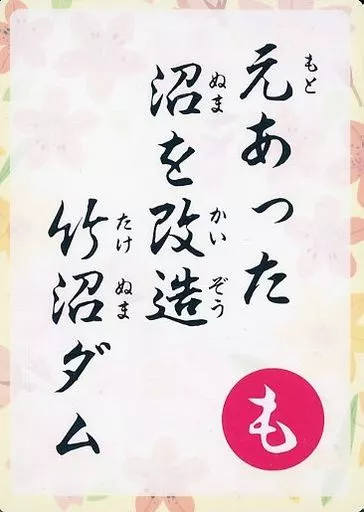 元あった
もと
沼を改造
ぬま
かいぞう
竹沼ダム
たけぬま
も